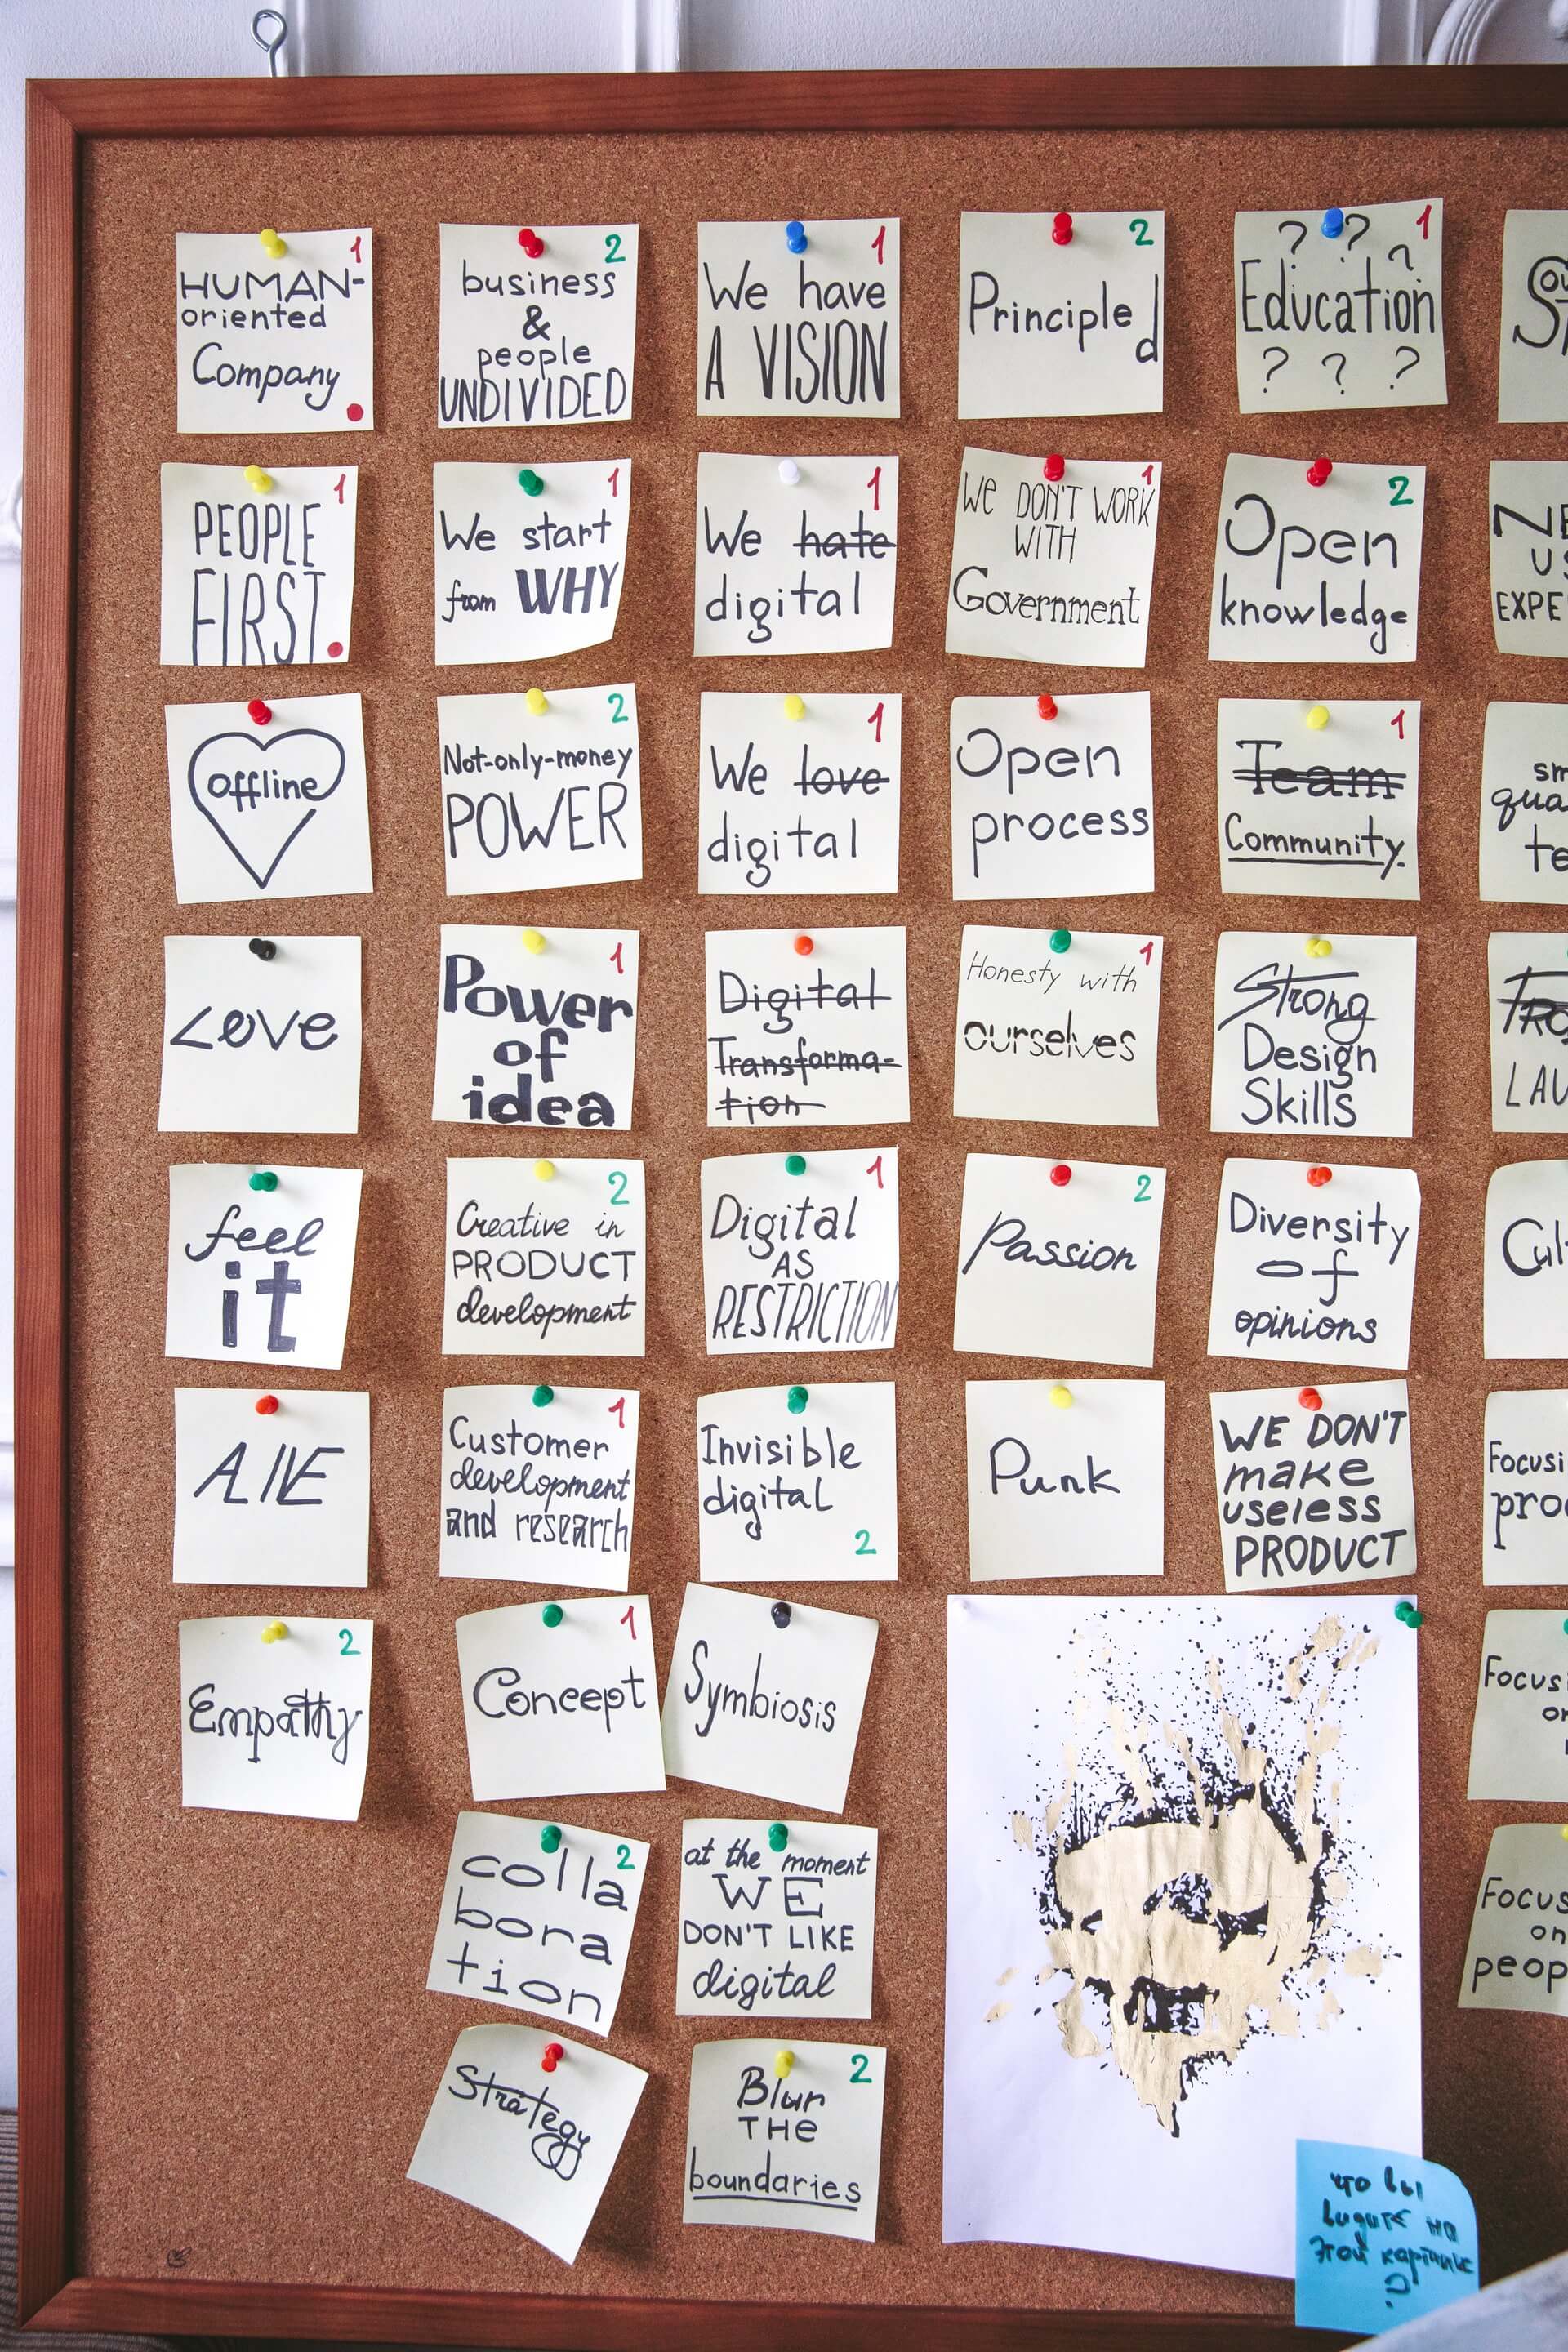 1
HUMAN-
oriented
Company
2
business
&
people
UNDIVIDED
1
We have
A VISION
2
Principled
1
? ? ?
Education
? ? ?
1
PEOPLE
FIRST
1
We start
from WHY
1
We hate
digital
1
We DON'T WORK
WITH
Government
2
Open
knowledge
NE
US
EXPE
offline
2
Not-only-money
POWER
1
We love
digital
Open
process
1
Team
Community.
sm
qua
te
Love
1
Power
of
idea
Digital
Transforma-
tion
1
Honesty with
ourselves
Strong
Design
Skills
LAU
feel
it
2
Creative in
PRODUCT
development
1
Digital
AS
RESTRICTION
2
Passion
Diversity
of
opinions
Cul
ALIVE
1
Customer
development
and research
Invisible
digital
2
Punk
WE DON'T
make
useless
PRODUCT
Focusi
pro
2
Empathy
1
Concept
Symbiosis
Focus
on
2
colla
bora
tion
at the moment
WE
DON'T LIKE
digital
Focus
on
peop
Strategy
2
Blur
THE
boundaries
что вы
видите на
этой картинке
?